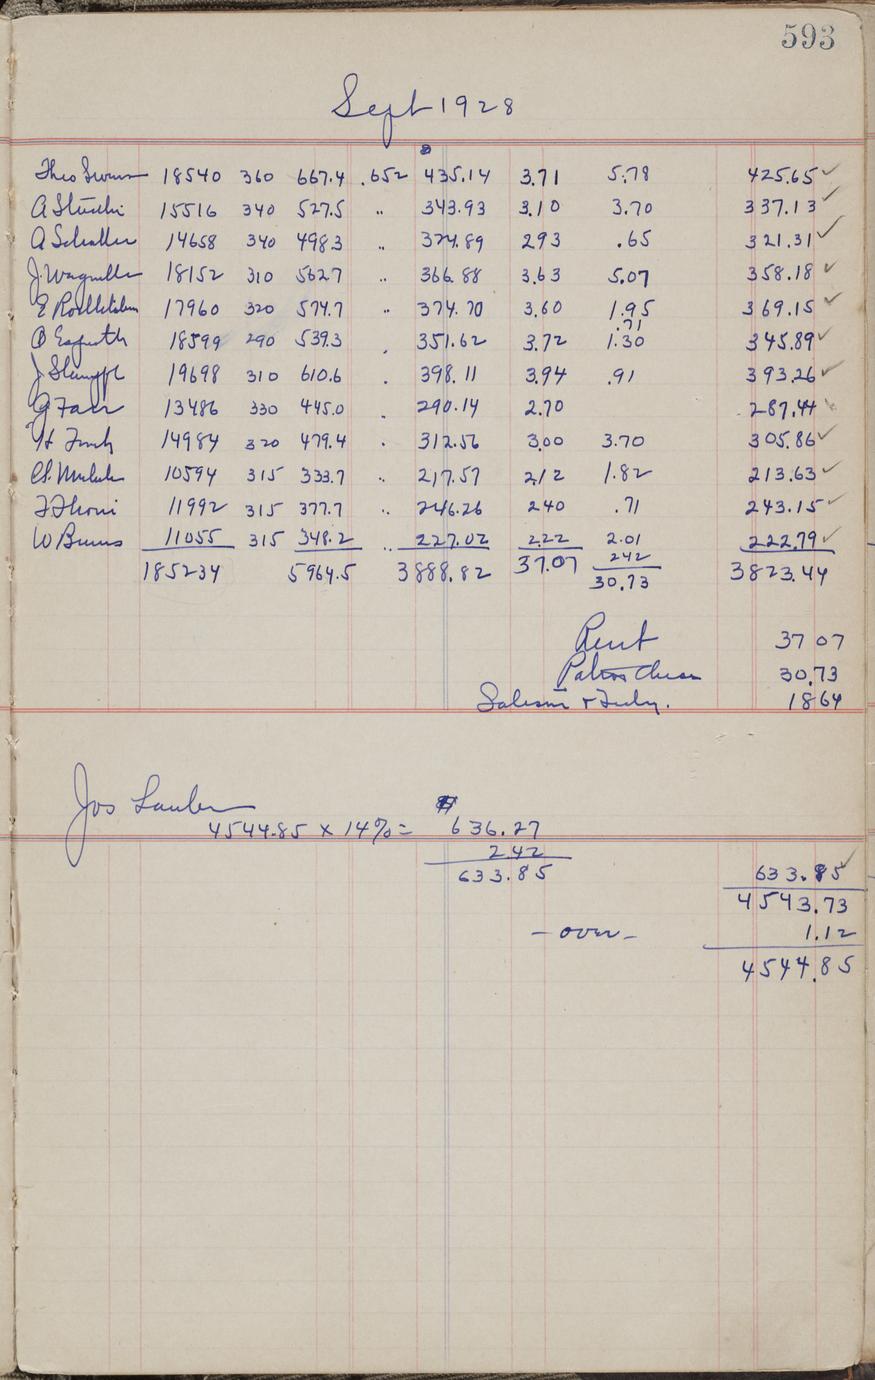 593
Sept 1928
Theo 18540 360 667.4 .652 435.14 3.71 5.78 425.65 ✓
A 15516 340 527.5 " 343.93 3.10 3.70 337.13 ✓
A Schaller 14658 340 4983 " 324.89 293 .65 321.31 ✓
J. 18152 310 5627 " 366.88 3.63 5.07 358.18 ✓
E 17960 320 574.7 " 374.70 3.60 1.95 369.15 ✓
.71
18599 290 539.3 . 351.62 3.72 1.30 345.89 ✓
J 19698 310 610.6 . 398.11 3.94 .91 393.26 ✓
G 13486 330 445.0 . 290.14 2.70 287.44 ✓
H 14984 320 479.4 . 312.56 3.00 3.70 305.86 ✓
10594 315 333.7 . 217.57 212 1.82 213.63 ✓
11992 315 377.7 . 246.26 240 .71 243.15 ✓
W Burns 11055 315 348.2 .. 227.02 2.22 2.01 222.79 ✓
242
185234 5964.5 3888.82 37.07 30.73 3823.44
Rent 37 07
Patrons Cheese 30.73
Salesm + July. 1864
Jos Lauber
4544.85 x 14% = # 636.27
2.42
633.85 633.85 ✓
4543.73
- over - 1.12
4544.85